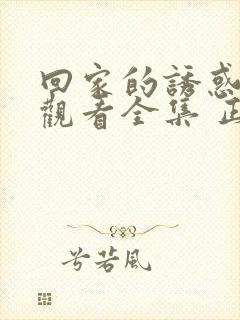 回家的誘惑
觀看全集 正
兮若風